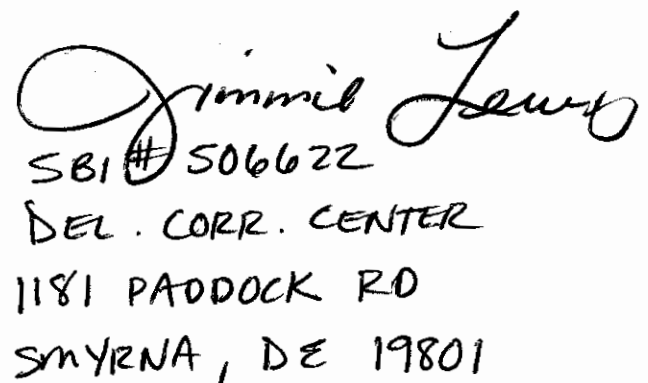 Jimmie Lewis
SBI # 506622
DEL. CORR. CENTER
1181 PADDOCK RD
SMYRNA, DE 19801